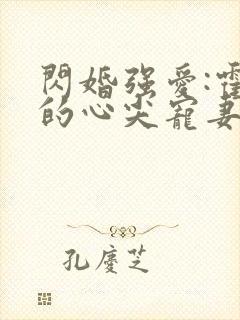 閃婚强愛:霍
的心尖寵妻
孔慶芝